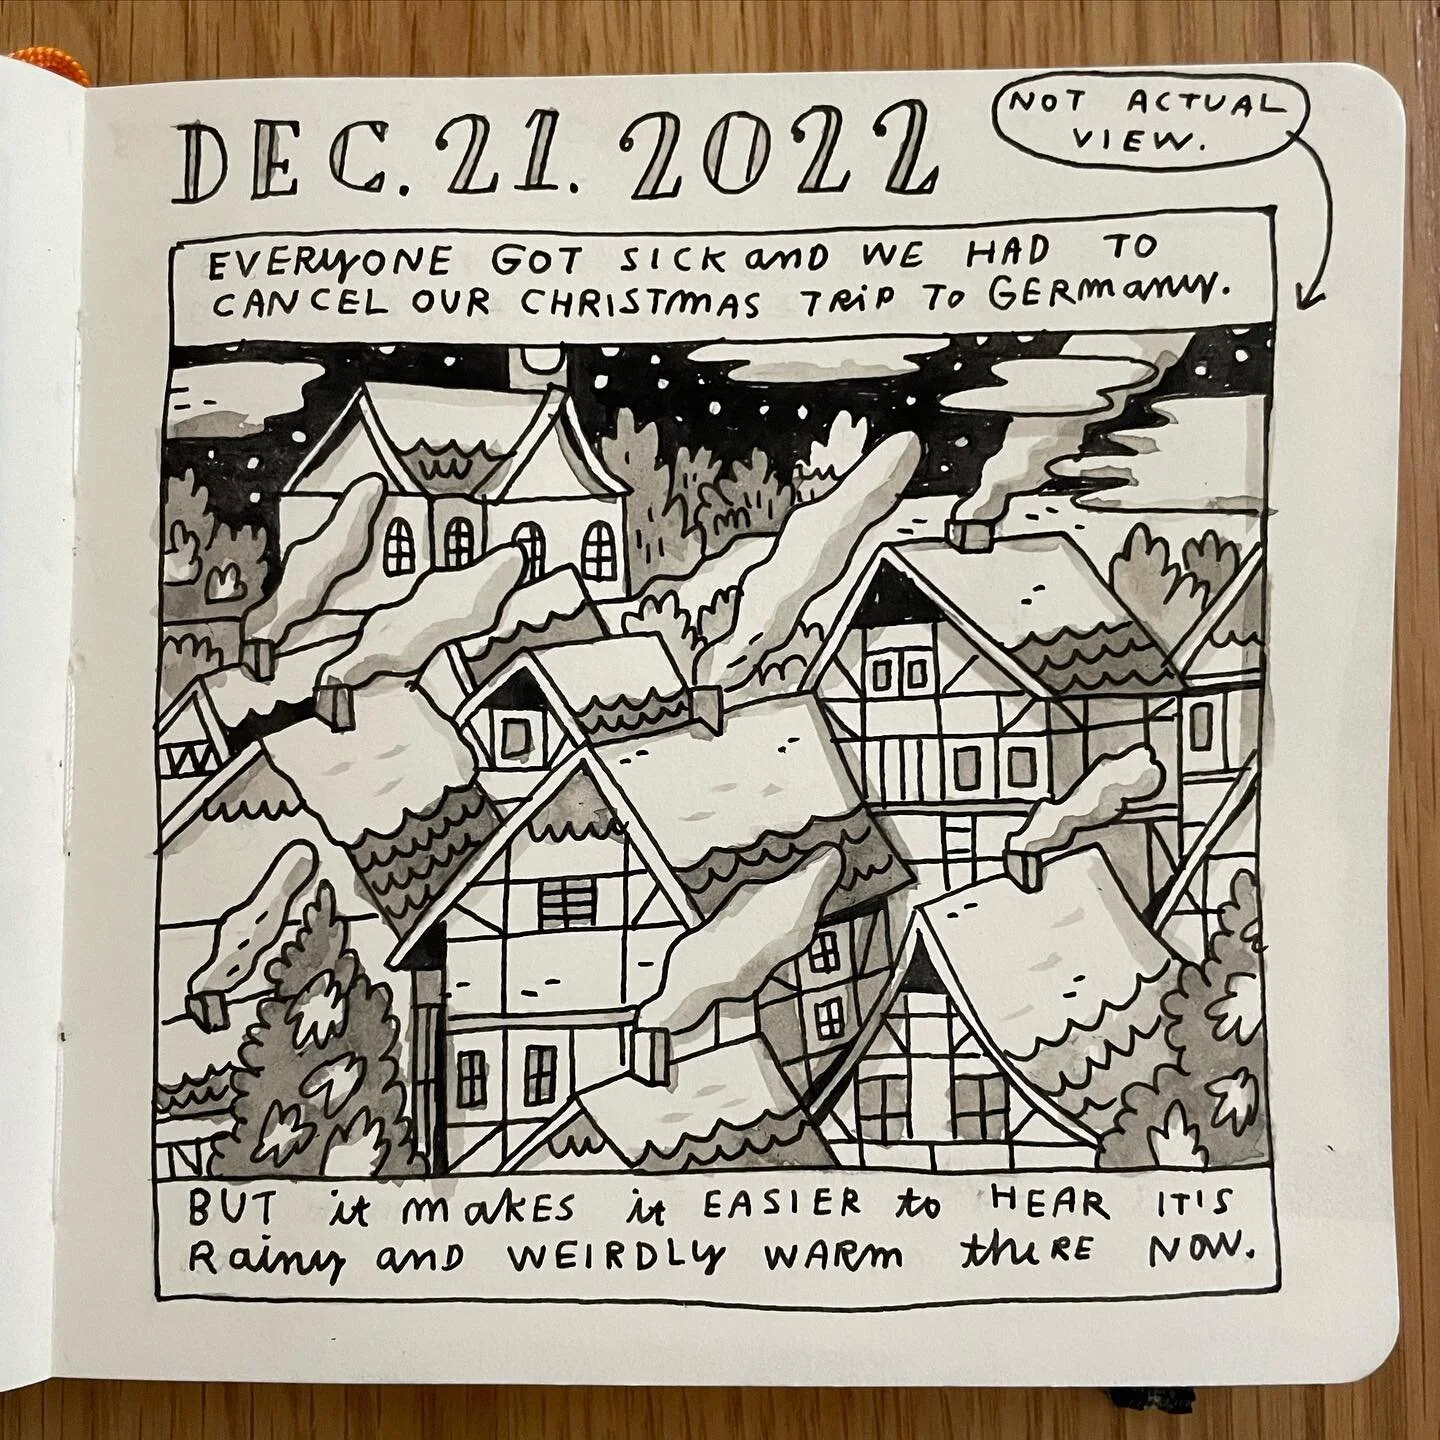 DEC. 21. 2022
NOT ACTUAL
VIEW.
EVERYONE GOT SICK AND WE HAD TO
CANCEL OUR CHRISTMAS TRIP TO GERMANY.
BUT it makes it EASIER to HEAR IT'S
Rainy and WEIRDLY WARM there NOW.